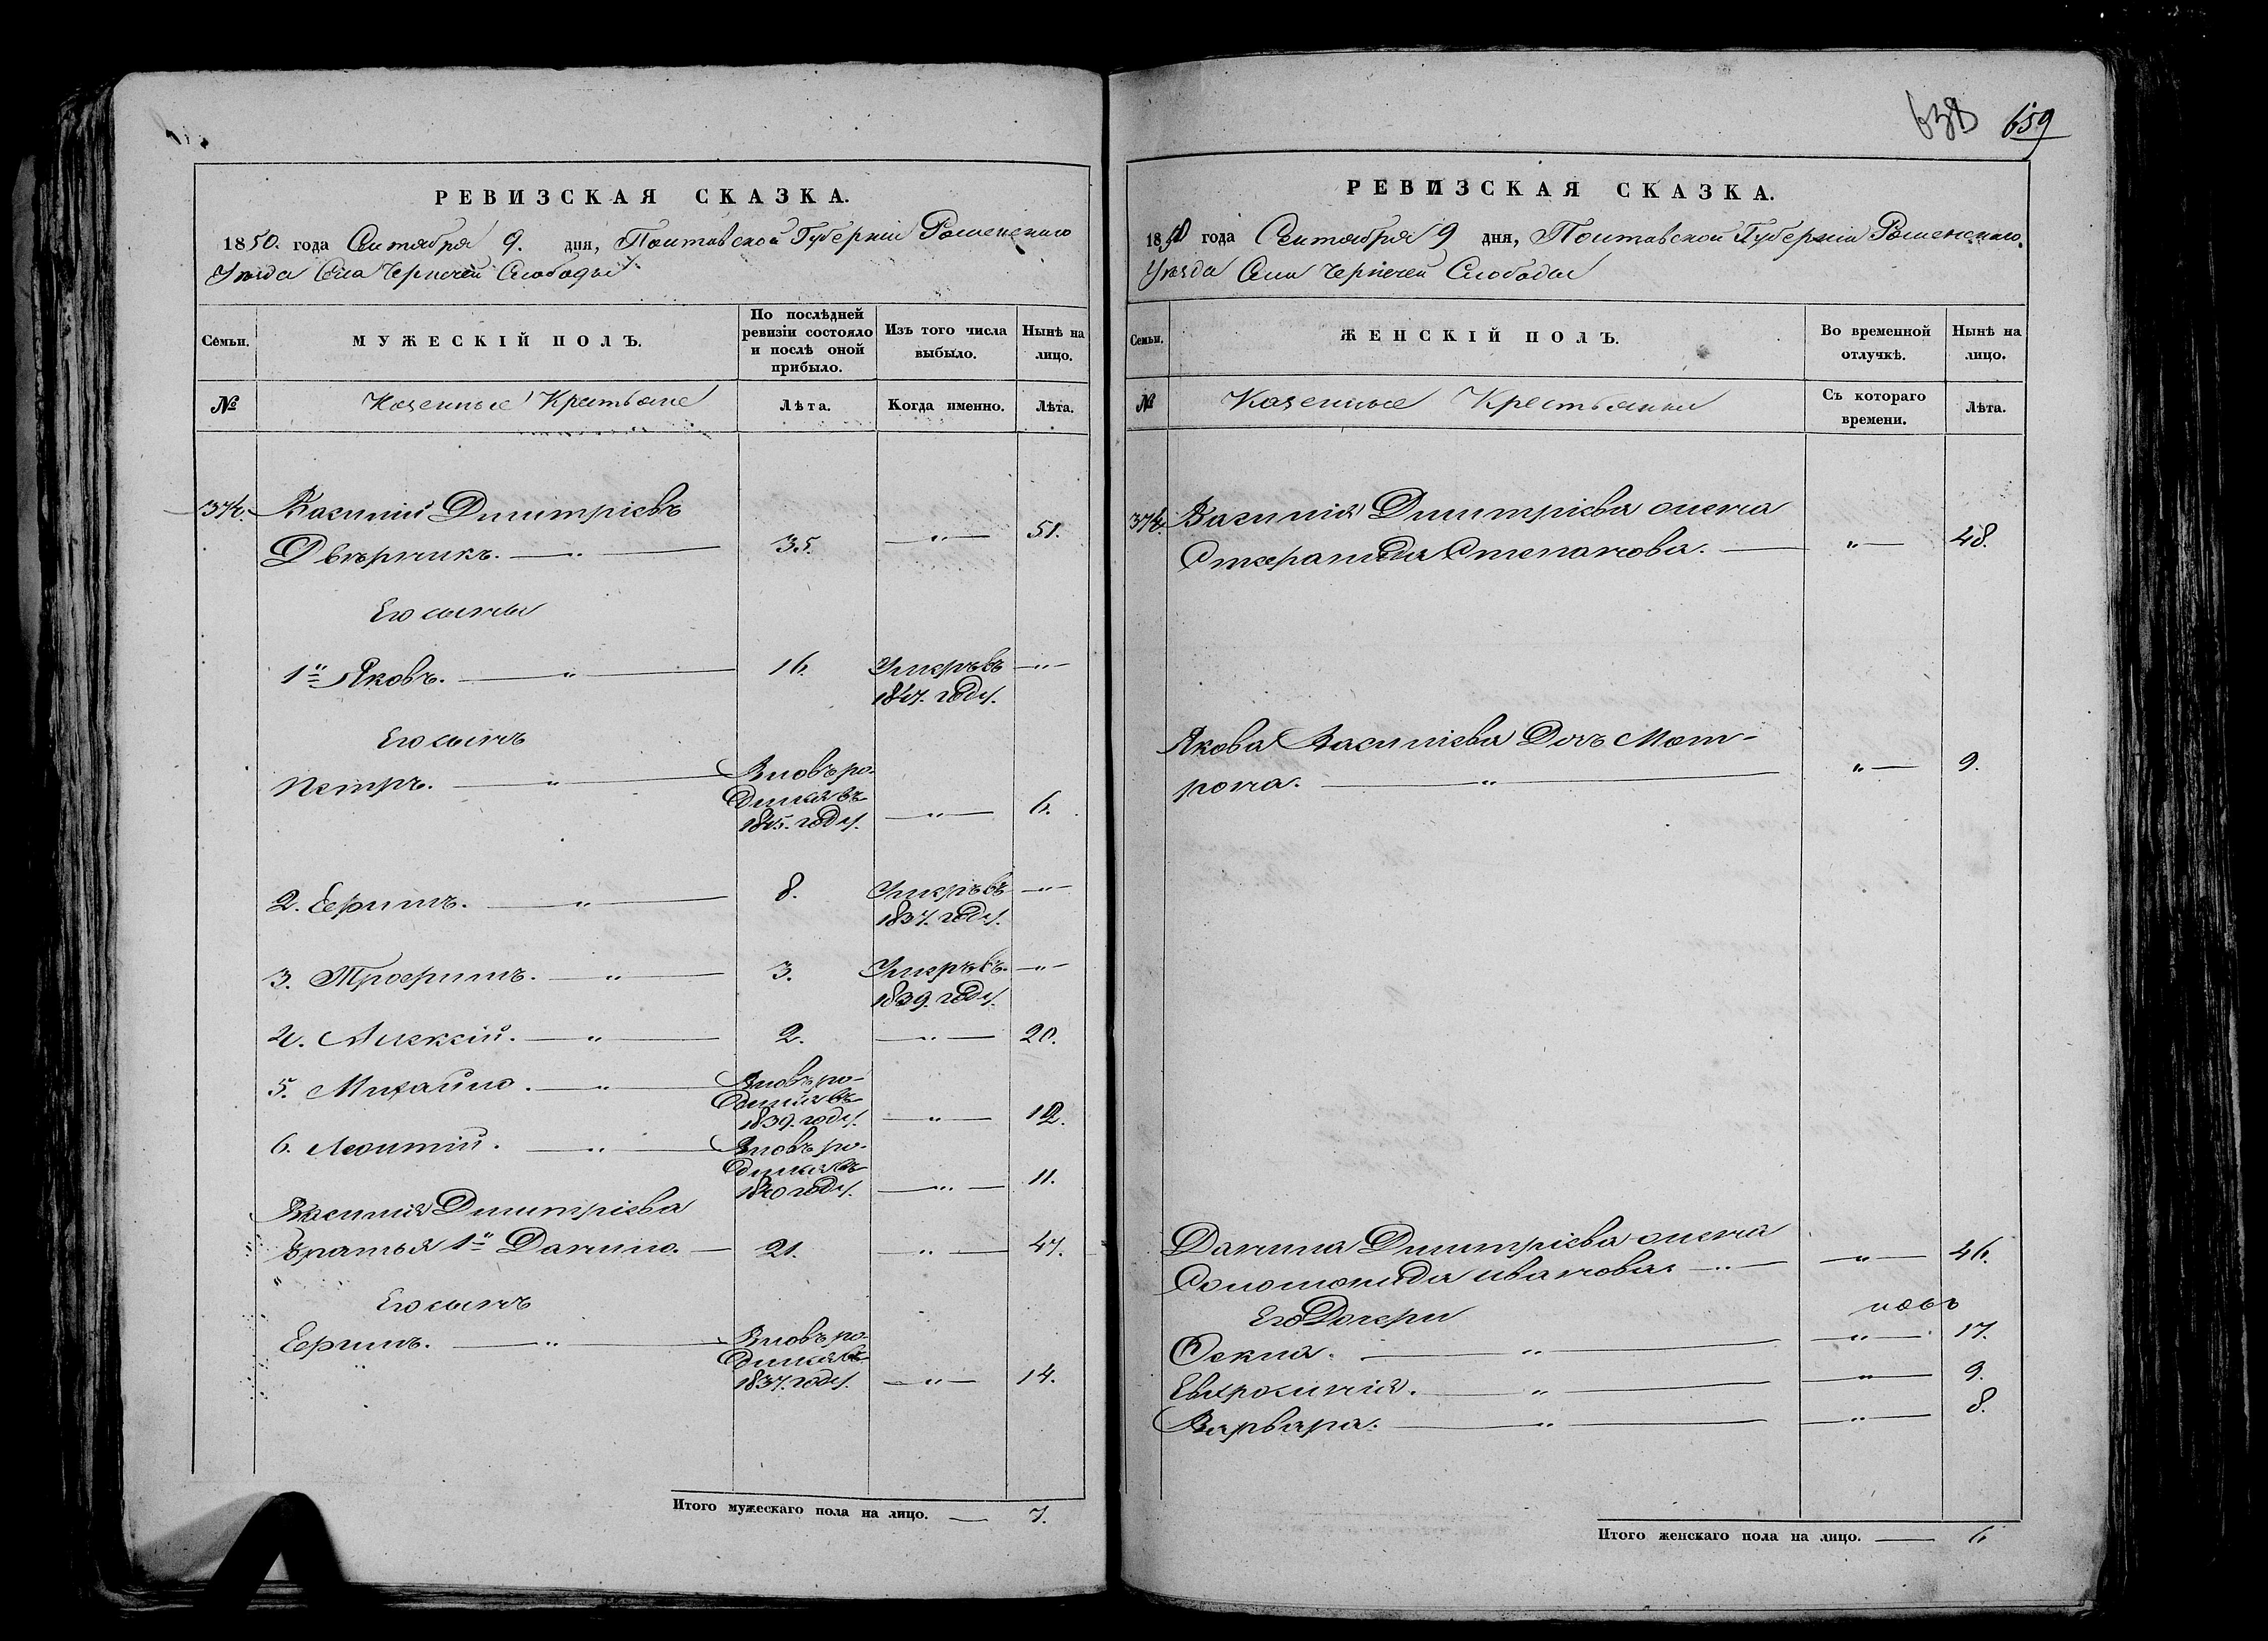 РЕВИЗСКАЯ СКАЗКА.
1850. года Сентября 9. дня, Полтавской Губерніи Роменскаго
Уѣзда Села Чернечей Слободы
Семьи.
МУЖЕСКІЙ ПОЛЪ.
По послѣдней
ревизіи состояло
и послѣ оной
прибыло.
Изъ того числа
выбыло.
Нынѣ на
лицо.
№
Казенные Крестьяне
Лѣта.
Когда именно.
Лѣта.
374. Василий Димитріевъ
Дверникъ. — " — 35. — " — 51.
Его сыны
1й Яковъ. — " — 16. Умеръ въ — " —
1847. году.
Его сынъ
Петръ. — " — Вновь ро-
дился въ
1845. году. — " — 6.
2. Ефримъ. — " — 8. Умеръ въ — " —
1837. году.
3. Трофимъ. — " — 3. Умеръ въ — " —
1839. году.
4. Алексій. — " — 2. — " — 20.
5. Михайло. — " — Вновь ро-
дился въ
1839. году. — " — 12.
6. Леонтій. — " — Вновь ро-
дился въ
1840 году. — " — 11.
Василия Димитріева
братья 1й Данило. — 21. " — 47.
Его сынъ
Ефримъ. — " — Вновь ро-
дился въ
1837. году. — " — 14.
Итого мужескаго пола на лицо. — 7.
638 659
РЕВИЗСКАЯ СКАЗКА.
1850 года Сентября 9 дня, Полтавской Губерніи Роменскаго
Уѣзда Села Чернечей Слободы
Семьи.
ЖЕНСКІЙ ПОЛЪ.
Во временной
отлучкѣ.
Нынѣ на
лицо.
№
Казенные Крестьянки
Съ котораго
времени.
Лѣта.
374. Василия Димитріева жена
Степанова. — " — 48.
Якова Василіева Дочь Мат-
рона. — " — " — 9.
Данила Димитріева жена
Соломонида Иванова. — " — " — 46.
Его Дочери
Фекла. — " — " — 17.
Евфросинія. — " — " — 9.
Варвара. — " — " — 8.
Итого женскаго пола на лицо. — 6